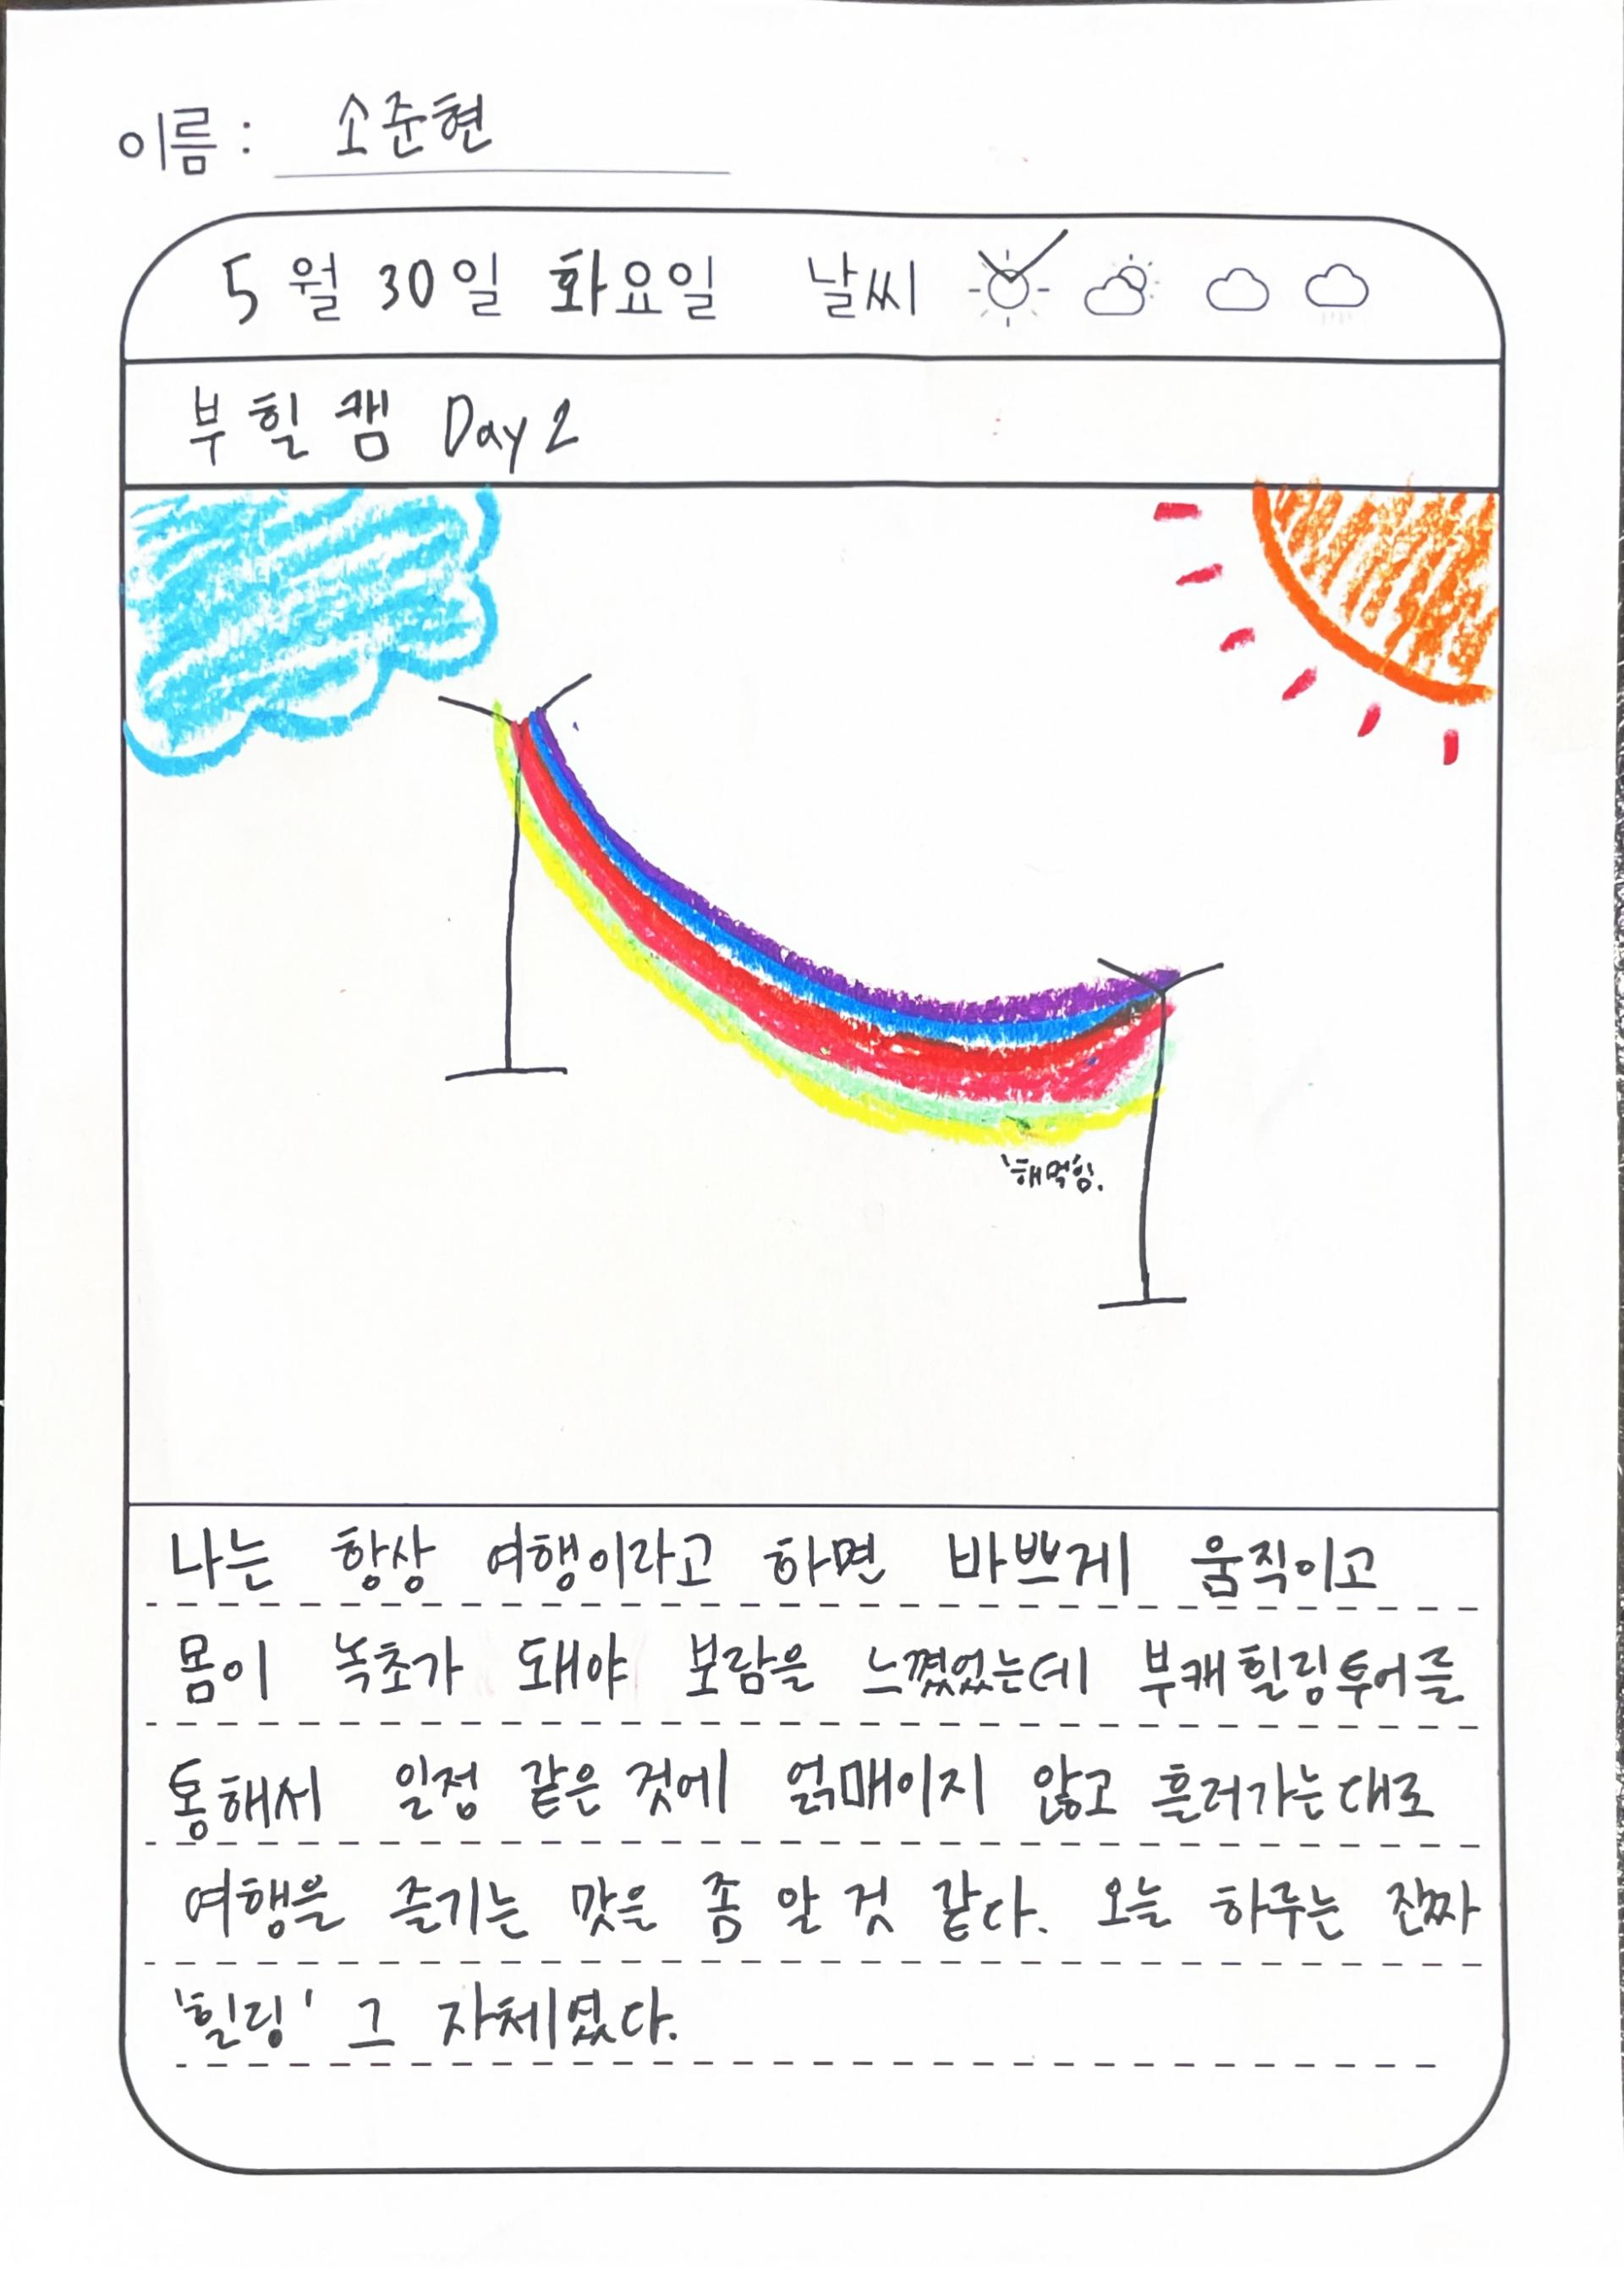 이름 : 소준현
5월 30일 화요일 날씨
부힐캠 Day 2
'해먹'임.
나는 항상 여행이라고 하면 바쁘게 움직이고
몸이 녹초가 돼야 보람을 느꼈었는데 부캐힐링투어를
통해서 일정 같은 것에 얽매이지 않고 흘러가는대로
여행을 즐기는 맛을 좀 알 것 같다. 오늘 하루는 진짜
'힐링' 그 자체였다.